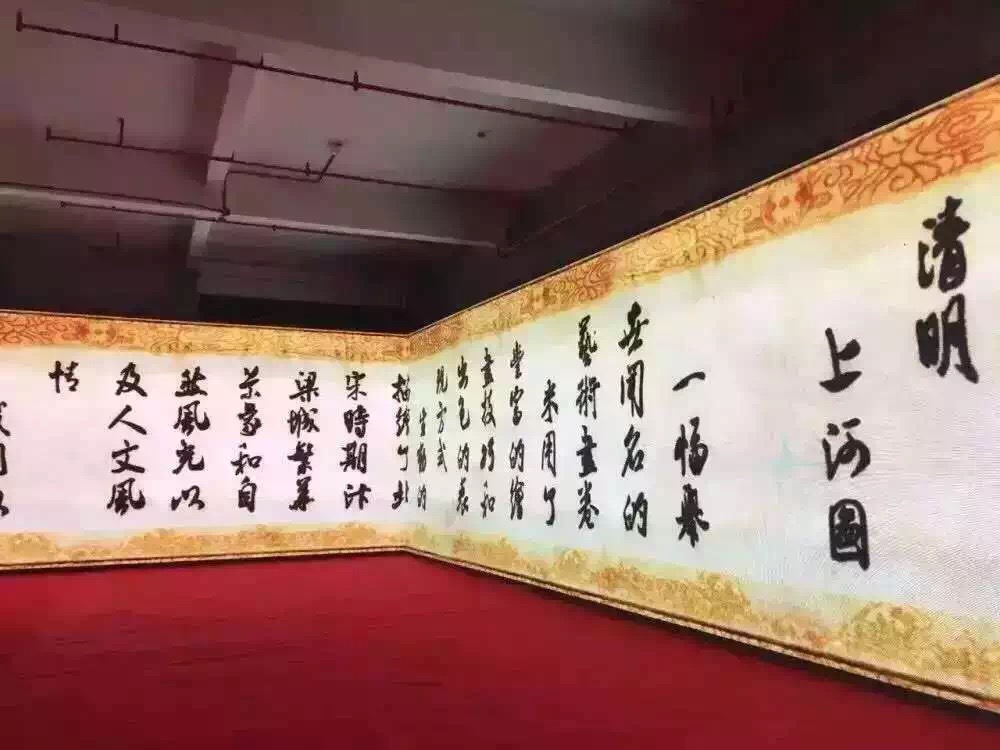 清明
上河圖
一幅舉
世聞名的
藝術畫卷
采用了
豐富的繪
畫技巧和
出色的表
现方式
生動的
描繪了北
宋時期汴
梁城繁華
景象和自
然風光以
及人文風
情